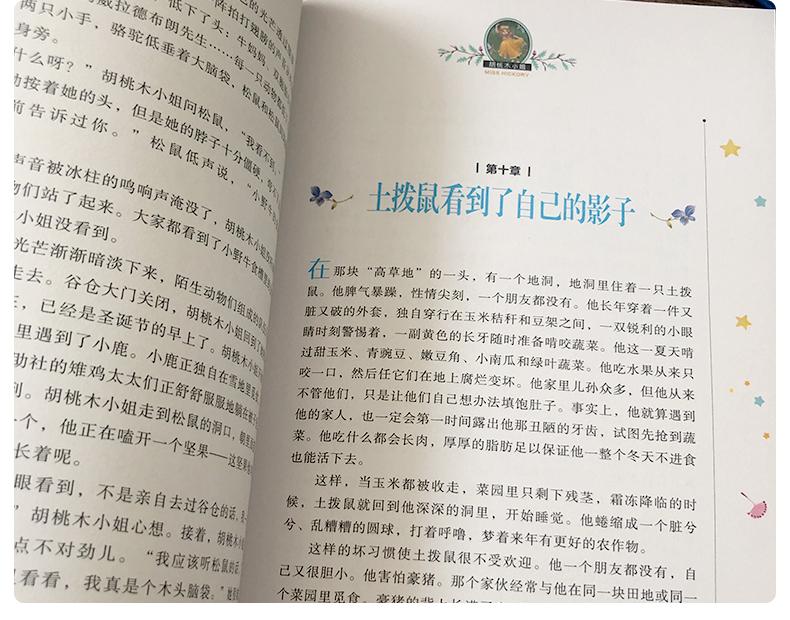 两只小手，骆驼低垂着大脑袋，松鼠和
身旁。
什么呀？”胡桃木小姐问松鼠，“我看不到
动按着她的头，但是她的脖子十分僵硬，
前告诉过你。”松鼠低声说，“小野牛
声音被冰柱的鸣响声淹没了，胡桃木小姐
物们站了起来。大家都看到了小野牛
小姐没看到。
光芒渐渐暗淡下来，陌生动物们组成的
走去。谷仓大门关闭，胡桃木小姐回到了
已经是圣诞节的早上了。胡桃木小姐
里遇到了小鹿。小鹿正独自在雪地里
助社的雉鸡太太们正舒舒服服地躺在
到。胡桃木小姐走到松鼠的洞口，
个，他正在嗑开一个坚果——这坚果
长着呢。
眼看到，不是亲自去过谷仓的话，
”胡桃木小姐心想。接着，胡桃木小姐
点不对劲儿。“我应该听松鼠的话
看看，我真是个木头脑袋。”
胡桃木小姐
MISS HICKORY
第十章
土拨鼠看到了自己的影子
在那块“高草地”的一头，有一个地洞，地洞里住着一只土拨
鼠。他脾气暴躁，性情尖刻，一个朋友都没有。他长年穿着一件又
脏又破的外套，独自穿行在玉米秸秆和豆架之间，一双锐利的小眼
睛时刻警惕着，一副黄色的长牙随时准备啃咬蔬菜。他这一夏天啃
过甜玉米、青豌豆、嫩豆角、小南瓜和绿叶蔬菜。他吃水果从来只
咬一口，然后任它们在地上腐烂变坏。他家里儿孙众多，但他从来
不管他们，只是让他们自己想办法填饱肚子。事实上，他就算遇到
他的家人，也一定会第一时间露出他那丑陋的牙齿，试图先抢到蔬
菜。他吃什么都会长肉，厚厚的脂肪足以保证他一整个冬天不进食
也能活下去。
这样，当玉米都被收走，菜园里只剩下残茎，霜冻降临的时
候，土拨鼠就回到他深深的洞里，开始睡觉。他蜷缩成一个脏兮
兮、乱糟糟的圆球，打着呼噜，梦着来年有更好的农作物。
这样的坏习惯使土拨鼠很不受欢迎。他一个朋友都没有，自
己又很胆小。他害怕豪猪。那个家伙经常与他在同一块田地或同一
个菜园里觅食。豪猪的背上长满了